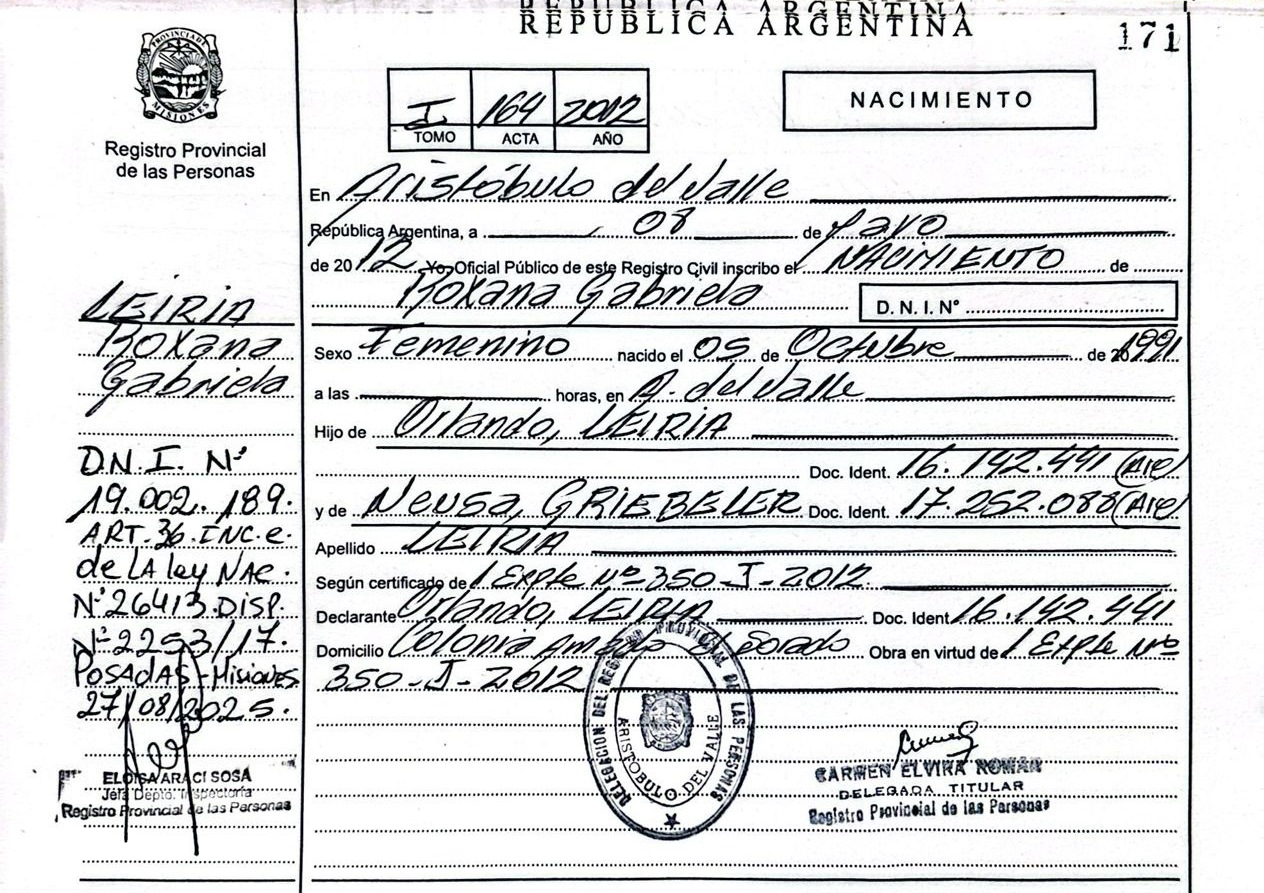 REPUBLICA ARGENTINA
171
PROVINCIA DE MISIONES
Registro Provincial
de las Personas
I 164 2012
TOMO ACTA AÑO
NACIMIENTO
En Aristóbulo del Valle
República Argentina, a 08 de
de 2012 Yo, Oficial Público de este Registro Civil inscribo el NACIMIENTO de
Roxana Gabriela D. N. I. Nº
Sexo Femenino nacido el 05 de Octubre de 1991
a las horas, en A. del Valle
Hijo de Orlando, LEIRIA
Doc. Ident. 16.142.441
y de Neusa, GRIEBELER Doc. Ident. 17.252.088
Apellido LEIRIA
Según certificado de Expte Nº 350-I-2012
Declarante Orlando, LEIRIA Doc. Ident 16.142.441
Domicilio Colonia Obra en virtud de Expte Nº
350-I-2012
LEIRIA
Roxana
Gabriela
D.N.I. Nº
19.002.189.
ART.36.INC.e.
de LA ley NAC.
Nº26413.DISP.
Nº2253/17.
POSADAS-Misiones
27/08/2025.
ELOISA ARACI SOSA
Jefa Depto. Inspectoría
Registro Provincial de las Personas
DELEGACION DEL REGISTRO PROVINCIAL DE LAS PERSONAS
ARISTOBULO DEL VALLE
CARMEN ELVIRA ROMAN
DELEGADA TITULAR
Registro Provincial de las Personas